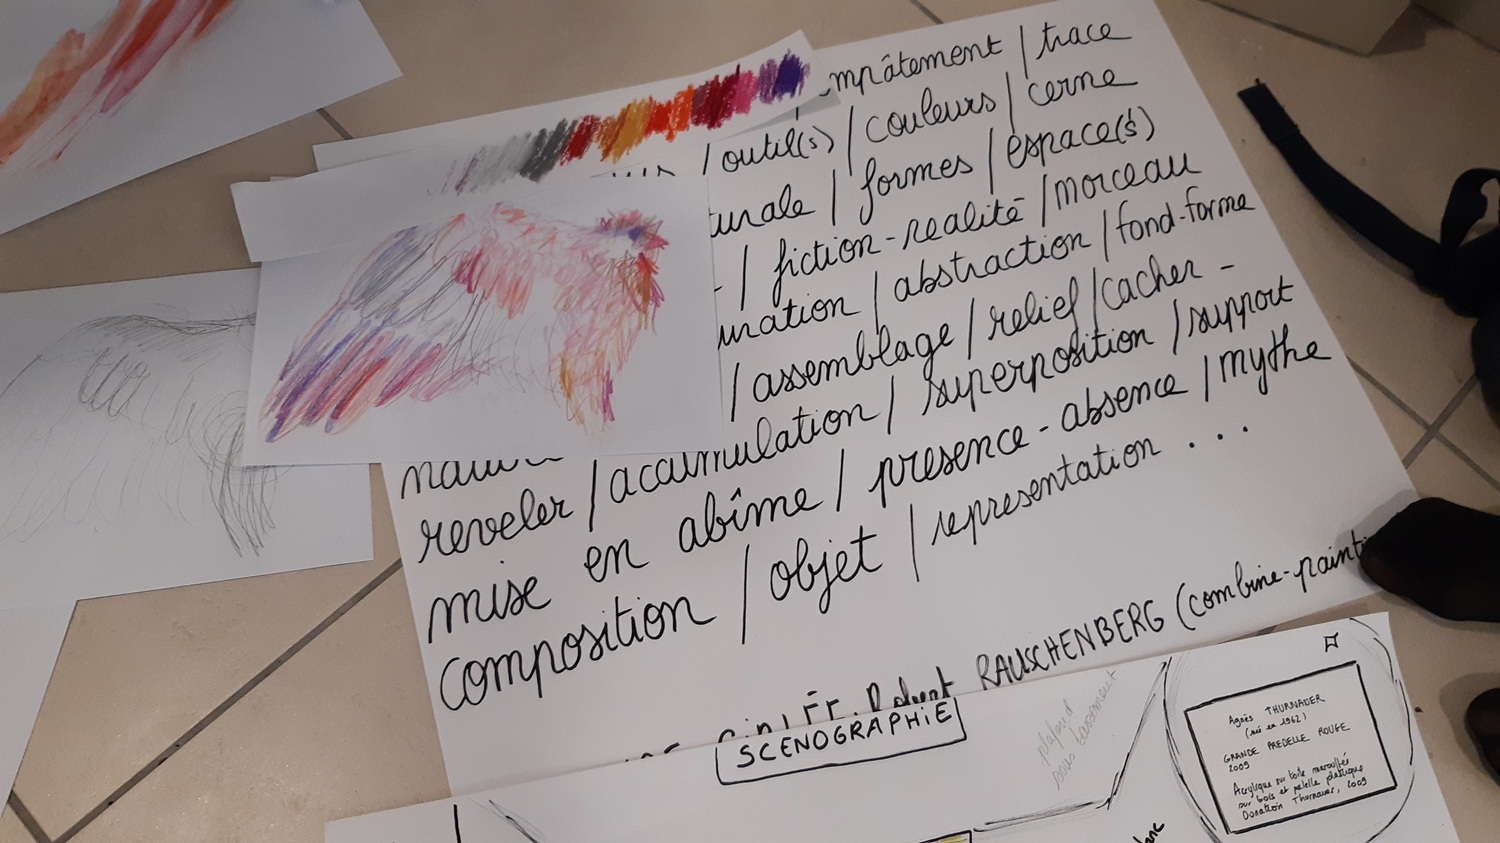 mpâtement / trace
/ outil(s) / couleurs / cerne
urale / formes / espace(s)
/ fiction-realité / morceau
/ abstraction / fond-forme
/ assemblage / relief / cacher -
reveler / accumulation / superposition / support
mise en abîme / presence-absence / mythe
composition / objet / representation ...
Robert RAUSCHENBERG (combine-painti
SCENOGRAPHIE
plafond
sous bassement
Agnès THURNAUER
(née en 1962)
GRANDE PREDELLE ROUGE
2009
Acrylique sur toile marouflée
sur bois et palette plastique
Donation Thurnauer, 2009